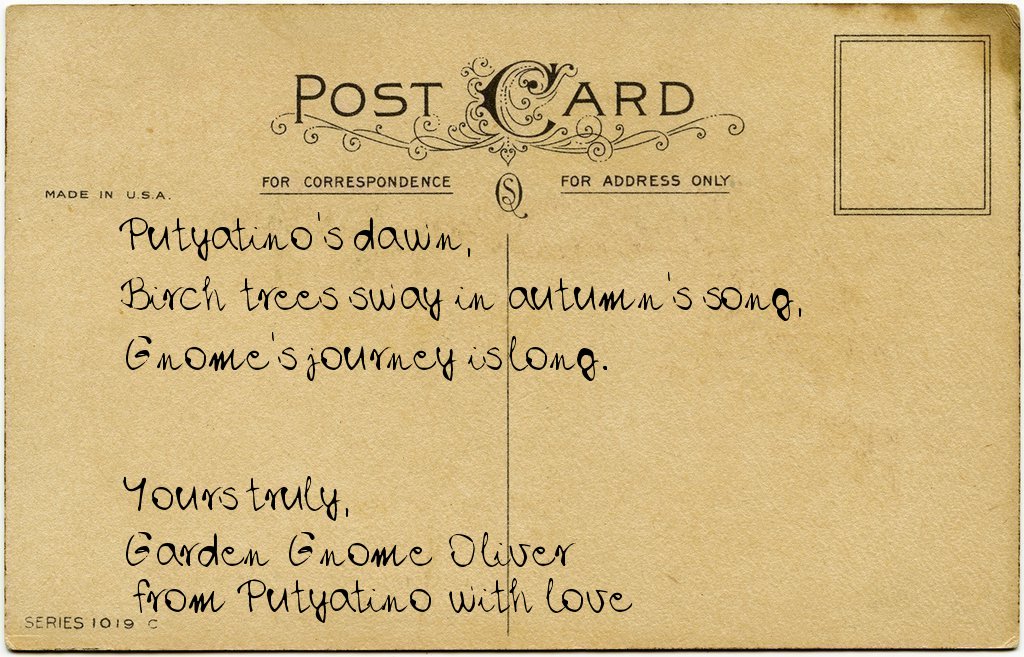 POST CARD
FOR CORRESPONDENCE
FOR ADDRESS ONLY
MADE IN U.S.A.
Putyatino's dawn,
Birch trees sway in autumn's song,
Gnome's journey is long.
Yours truly,
Garden Gnome Oliver
from Putyatino with love
SERIES 1019 C